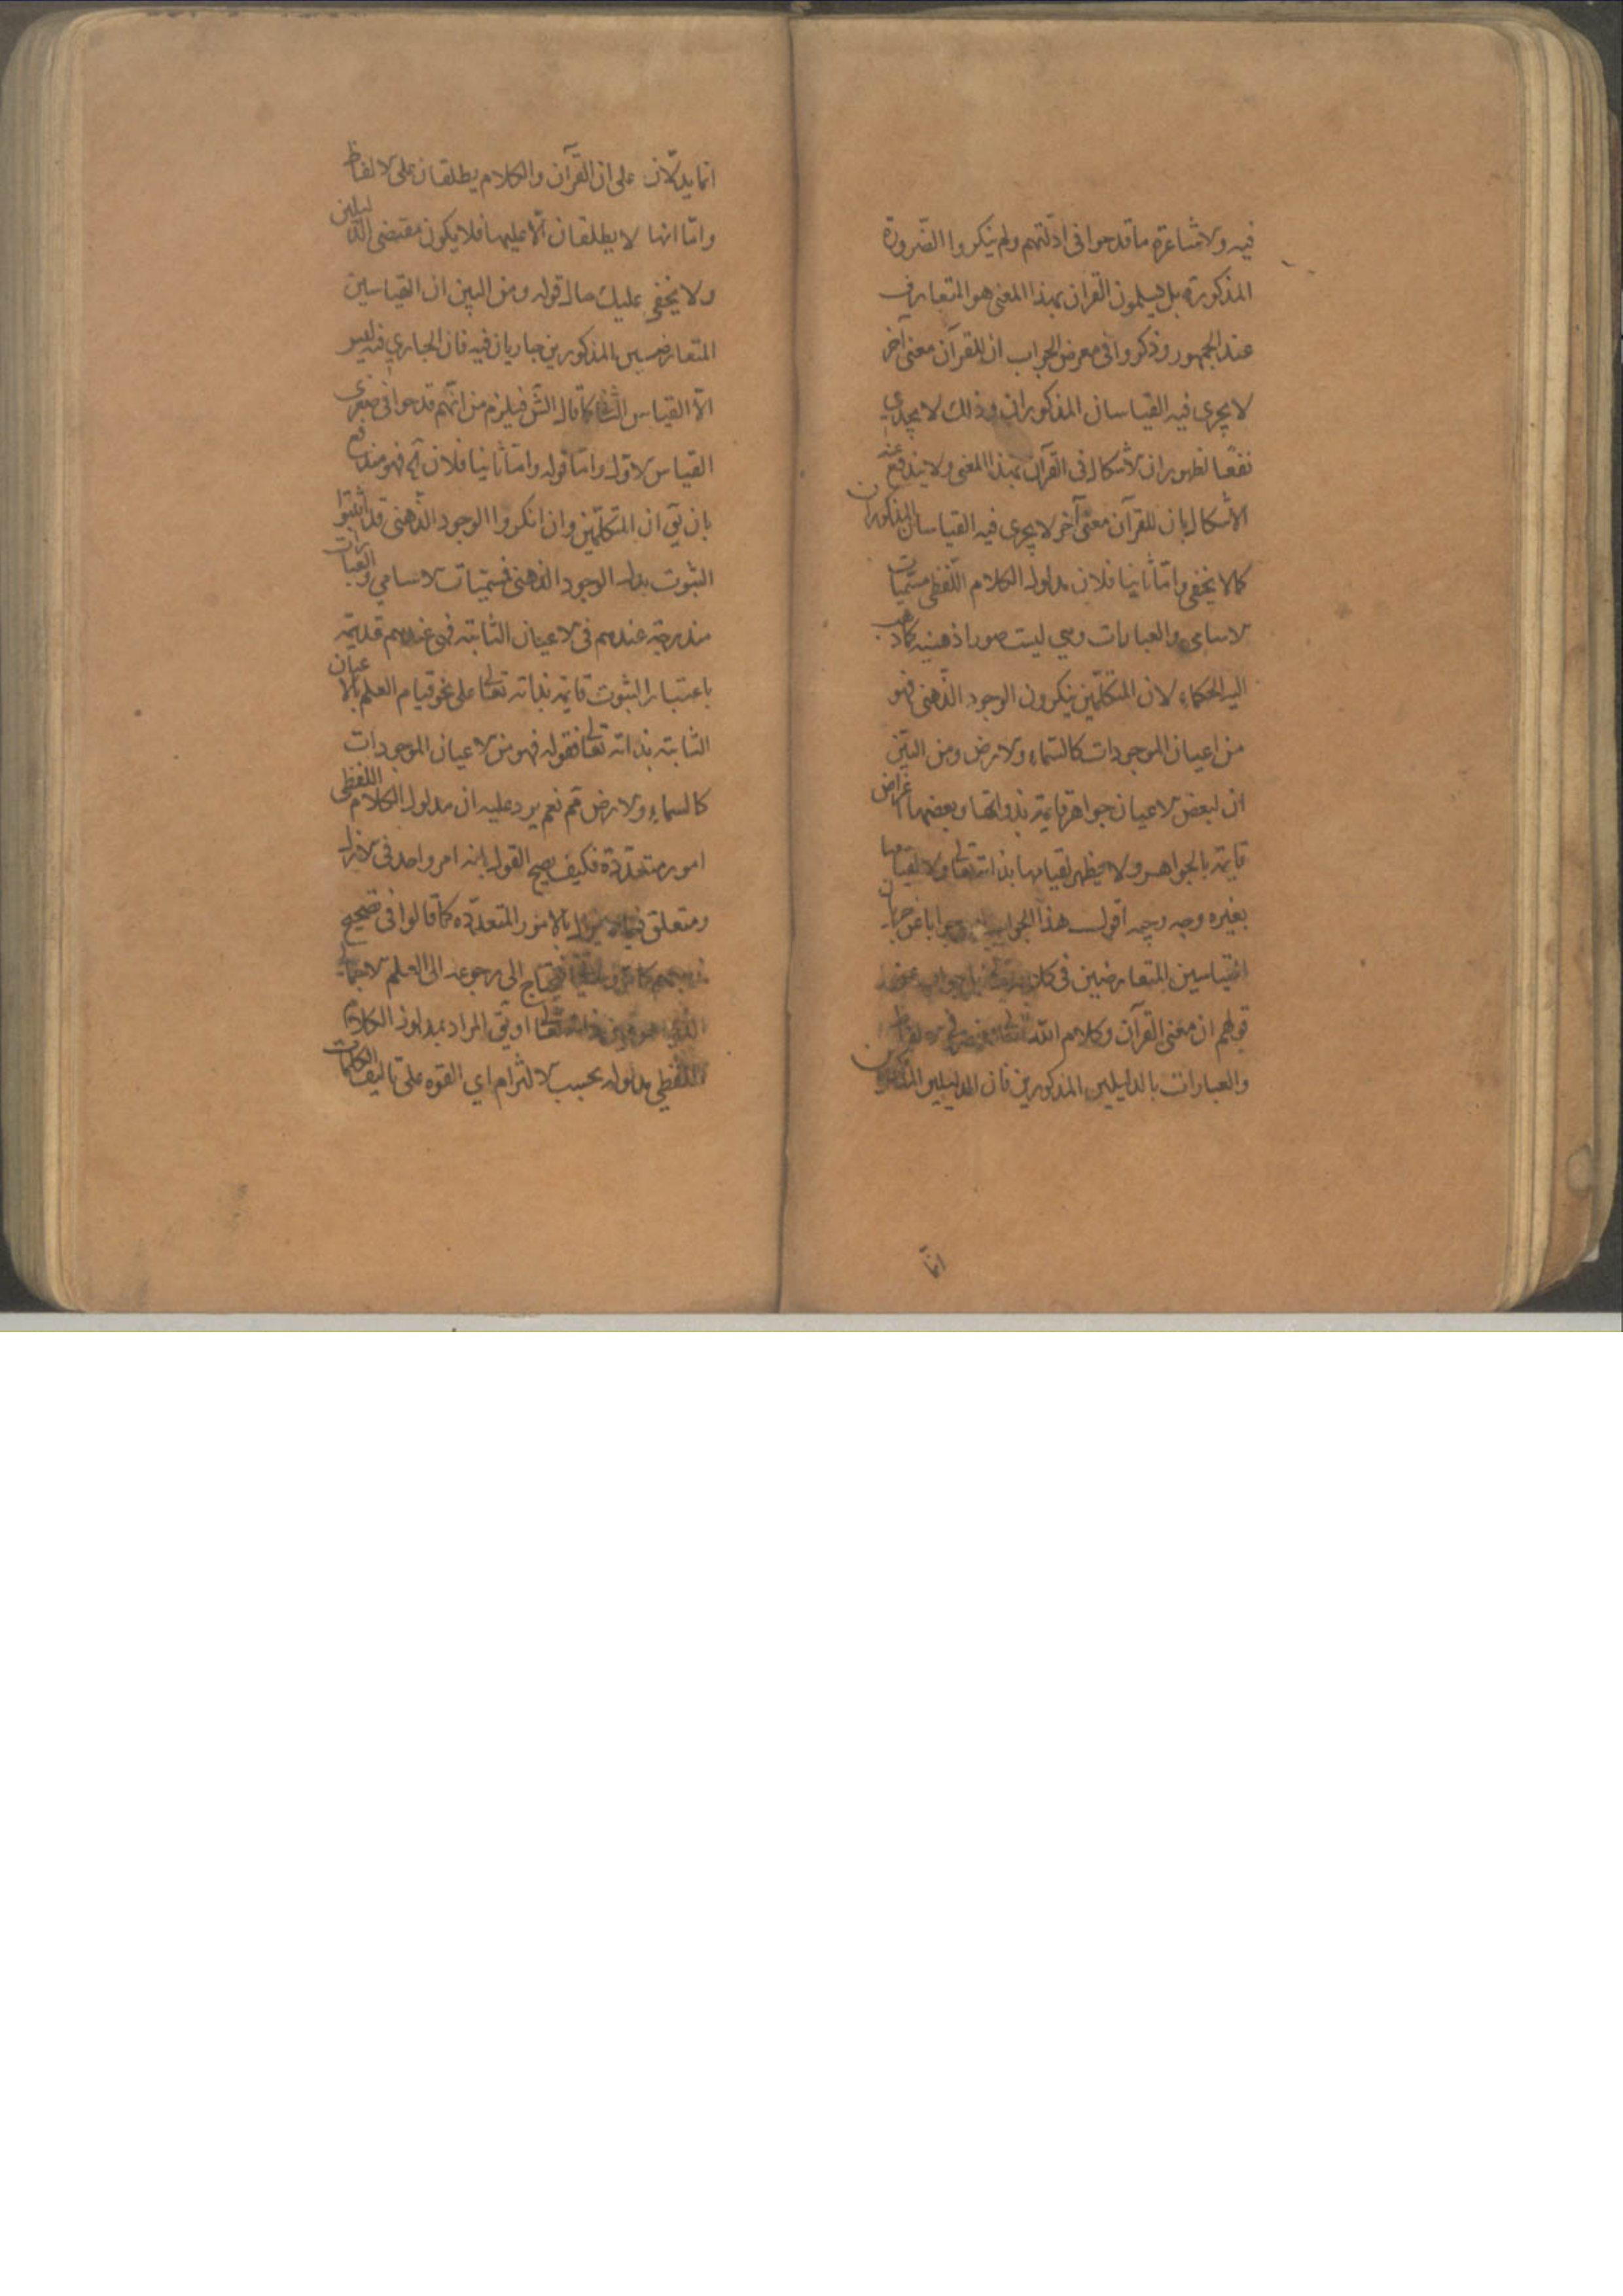 فيه والاشاعرة ما قدحوا فى ادلتهم ولم ينكروا الضرورة
المذكورة بل يسلمون القران بهذا المعنى هو المتعارف
عند الجمهور وذكروا فى معرض الجواب ان للقرآن معنى آخر
لا يجرى فيه القياسان المذكوران وذلك لا يجدي
نفعا لظهور ان الاشكال فى القرآن بهذا المعنى ولا يندفع عنه
الاشكال بان للقرآن معنى آخر لا يجرى فيه القياسان المذكوران
كما لا يخفى واما ثانيا فلان مدلول الكلام اللفظى مسميات
الاسامى والعبارات وهي ليست صورا ذهنية كما ذهب
اليه الحكماء لان المتكلمين ينكرون الوجود الذهنى فهو
من اعيان الموجودات كالسماء والارض ومن البين
ان لبعض الاعيان جواهر قايمة بذواتها وبعضها اعراض
قايمة بالجواهر ولا يظهر لقيامها بذاته تعالى ولا لقيامها
بغيره وجه وجيه اقول هذا الجواب جوابا عن جريان
القياسين المتعارضين فى كلامه تعالى بل جواب عن
قولهم ان معنى القرآن وكلام الله تعالى منحصر فى الالفاظ
والعبارات بالدليلين المذكورين فان الدليلين المذكورين
انما
انما يدلان على ان القرآن والكلام يطلقان على الالفاظ
واما انهما لا يطلقان الا عليهما فلا يكون مقتضى الدليلين
ولا يخفى عليك حال قوله ومن البين ان القياسين
المتعارضين المذكورين جاريان فيه فان الجاري فيه ليس
الا القياس الثانى كما قال الش فيلزم من انهم قدحوا فى صغرى
القياس الاول واما قوله واما ثانيا فلان آه فهو مندفع
بان يق ان المتكلمين وان انكروا الوجود الذهنى قد اثبتوا
الثبوت بدل الوجود الذهنى فمسميات الاسامي والعبارات
مندرجة عندهم فى الاعيان الثابتة فهى عندهم قديمة
باعتبار الثبوت قايمة بذاته تعالى على نحو قيام العلم بالاعيان
الثابتة بذاته تعالى فقوله فهو من الاعيان الموجودات
كالسماء والارض قم نعم يرد عليه ان مدلول الكلام اللفظى
امور متعددة فكيف يصح القول بانه امر واحد فى الازل
ومتعلق فيما لا يزال بالامور المتعددة كما قالوا فى تصحيح
فيحتاج الى رجوعه الى العلم الاجمالى
الذى هو تعالى او يق المراد بمدلول الكلام
اللفظي مدلوله بحسب الالتزام اي القوة على تاليف الكلمات